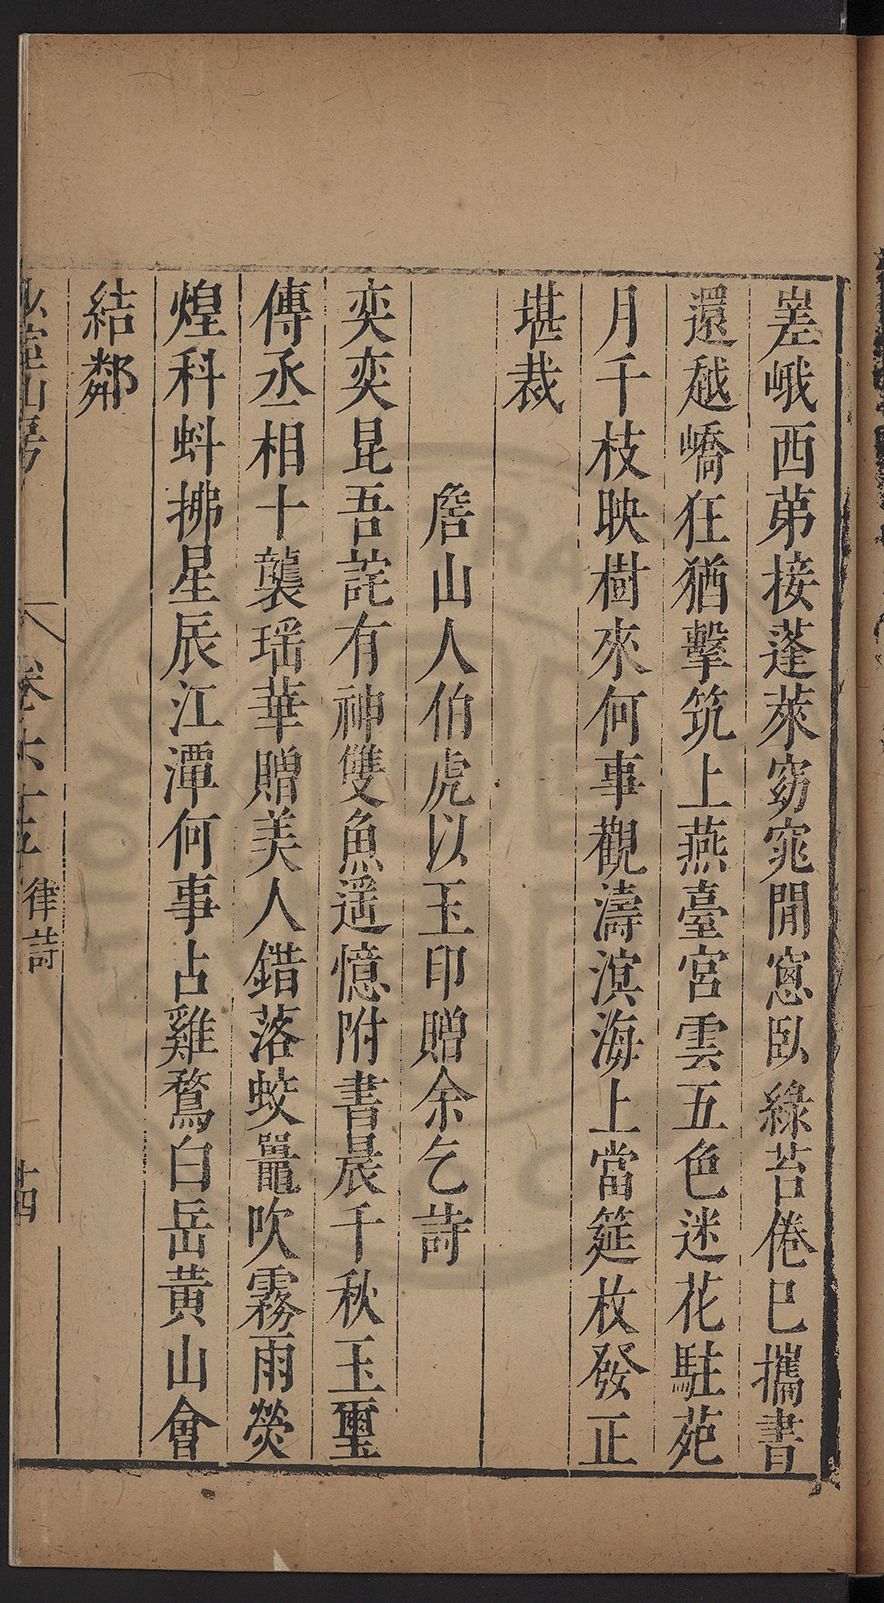 嵳峨西苐接蓬萊窈窕閒窻臥綠苔倦巳攜書
還越嶠狂猶擊筑上燕臺宮雲五色迷花駐苑
月千枝映樹來何事觀濤濱海上當筵枚發正
堪裁
詹山人伯虎以玉印贈余乞詩
奕奕昆吾詫有神雙魚遥憶附書晨千秋玉璽
傳丞相十襲瑶華贈美人錯落蛟鼉吹霧雨熒
煌科蚪拂星辰江潭何事占雞鶩白岳黃山會
結鄰
山房 卷六十五 律詩 十四